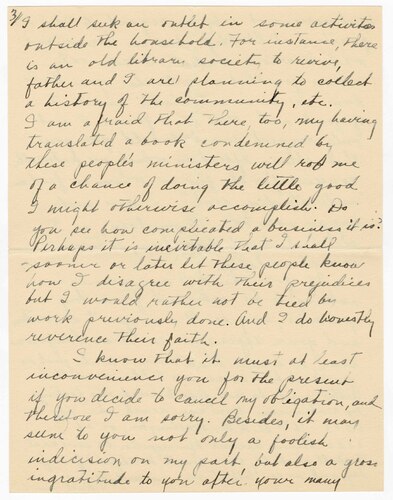 3/ I shall seek an outlet in some activities
outside the household. For instance, there
is an old library society to revive,
father and I are planning to collect
a history of the community, etc.
I am afraid that there, too, my having
translated a book condemned by
these people's ministers will rob me
of a chance of doing the little good
I might otherwise accomplish. Do
you see how complicated a business it is?
Perhaps it is inevitable that I shall
sooner or later let these people know
how I disagree with their prejudices
but I would rather not be tied by
work previously done. And I do honestly
reverence their faith.
I know that it must at least
inconvenience you for the present
if you decide to cancel my obligation, and
therefore I am sorry. Besides, it may
seem to you not only a foolish
indicision on my part but also a gross
ingratitude to you after your many